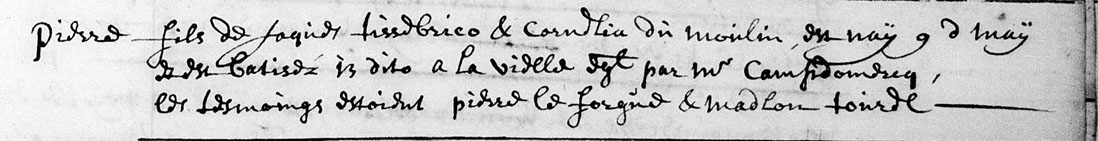 Pierre fils de Jaques tissebrico & Cornelia du moulin, est nay 9 d may
& est batisez 13 dito a la vielle egl par mr Campdomercq,
les tesmoings estoient pierre le forgue & madlon tourel